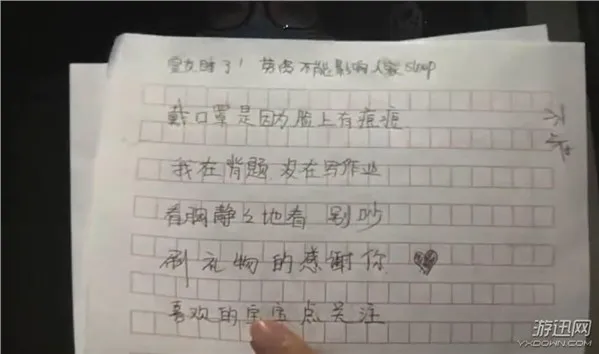 室友睡了! 劳资不能影响人家sleep
戴口罩是因为脸上有痘痘
我在背题 没在写作业
看胸静静地看 别吵
刷礼物的感谢你
喜欢的宝宝点关注
游迅网
YXDOWN.COM